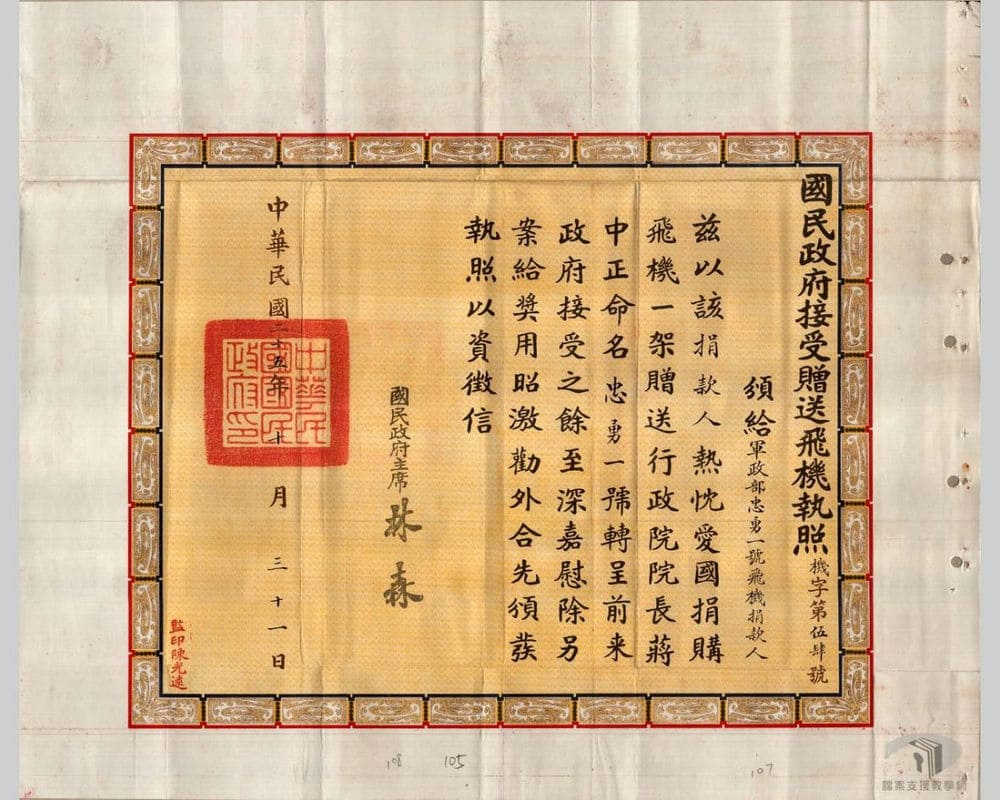 國民政府接受贈送飛機執照
機字第伍肆號
頒給軍政部忠勇一號飛機捐款人
茲以該捐款人熱忱愛國捐購
飛機一架贈送行政院院長蔣
中正命名忠勇一號轉呈前来
政府接受之餘至深嘉慰除另
案給獎用昭激勸外合先頒發
執照以資徵信
國民政府主席 林森
中華民國二十五年十月三十一日
中華民國國民政府印
監印陳光遠
108
105
107
檔案支援教學網